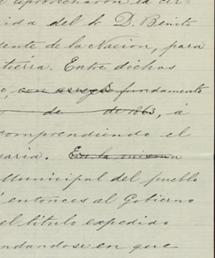 aprovecharon la cir
ida del h. D. Benito
dente de la Nacion, para
tierra. Entre dichos
o, con arreglo fundamento
de de 1863, á
comprendiendo el
aria. En la misma
Municipal del pueblo
á entonces al Gobierno
el título expedido
ndandose en que